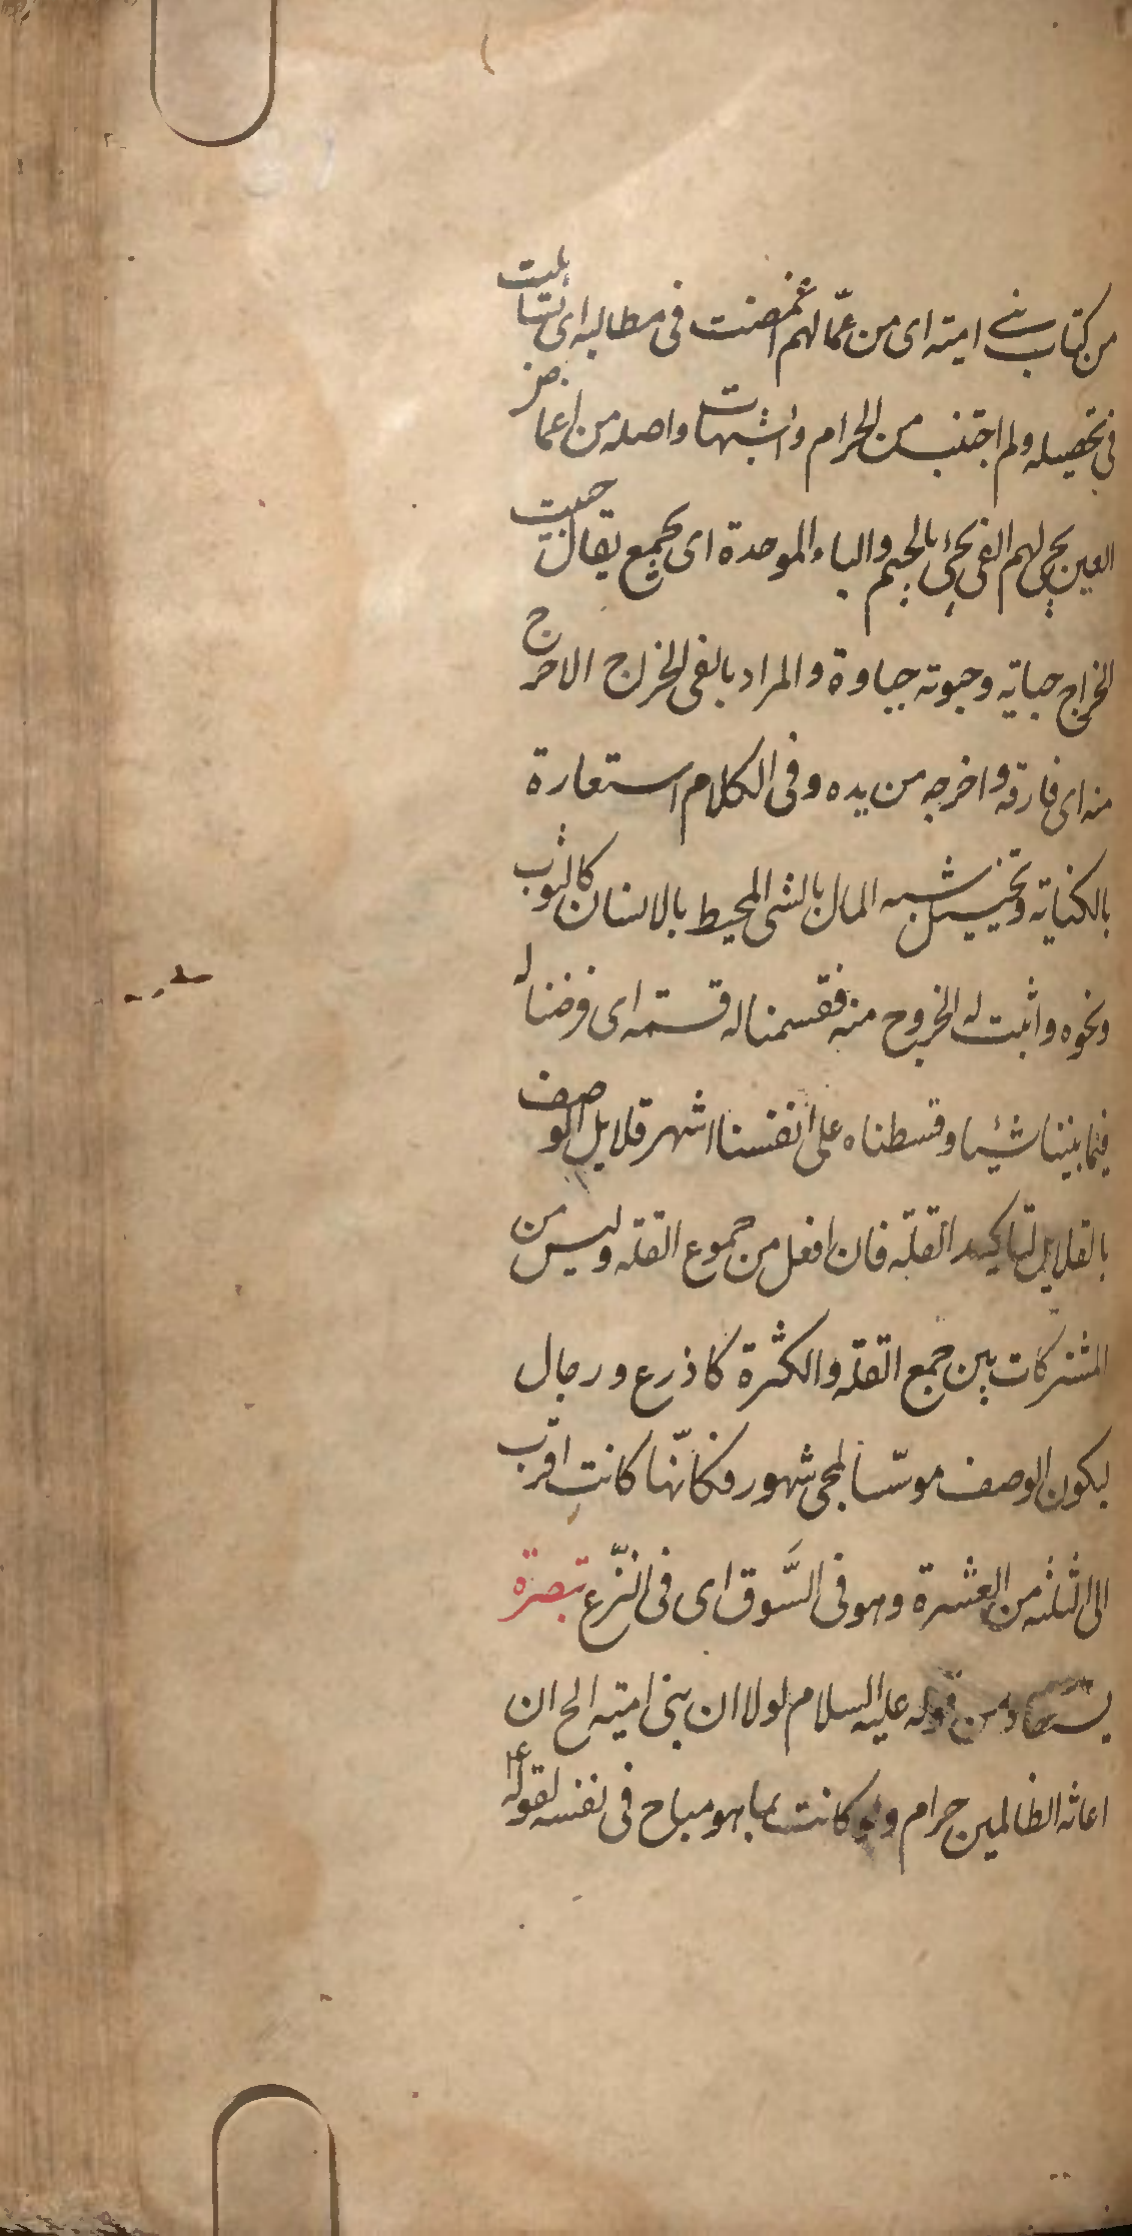 من كتاب بنى امية اى من عمّالهم اغمضت فى مطالبه اى تساهلت
فى تحصيله ولم اجتنب من الحرام والشبهات واصله من اغماض
العين يجبى لهم الفى يجبى بالجيم والباء الموحدة اى يجمع يقال جبيت
الخراج جباية وجبوته جباوة والمراد بالفى الخراج الا خرج
منه اى فارقه واخرجه من يده وفى الكلام استعارة
بالكناية وتخييل شبه المال بالشى المحيط بالانسان كالثوب
ونحوه واثبت له الخروج منه فقسمنا له قسمة اى فرضنا له
فيما بيننا شيئا وقسطناه على انفسنا اشهر قلايل الوصف
بالقلايل لتاكيد القلّة فان افعل من جموع القلة وليس من
المشتركات بين جمع القلة والكثرة كاذرع ورجال
ليكون الوصف موسّسا لمجى شهور فكانّها كانت اقرب
الى الثلثة من العشرة وهو فى السَّوق اى فى النّزع تبصرة
يستفاد من قوله عليه السلام لولا ان بنى امية الخ ان
اعانة الظالمين حرام ولو كانت بما هو مباح فى نفسه لقوله ع